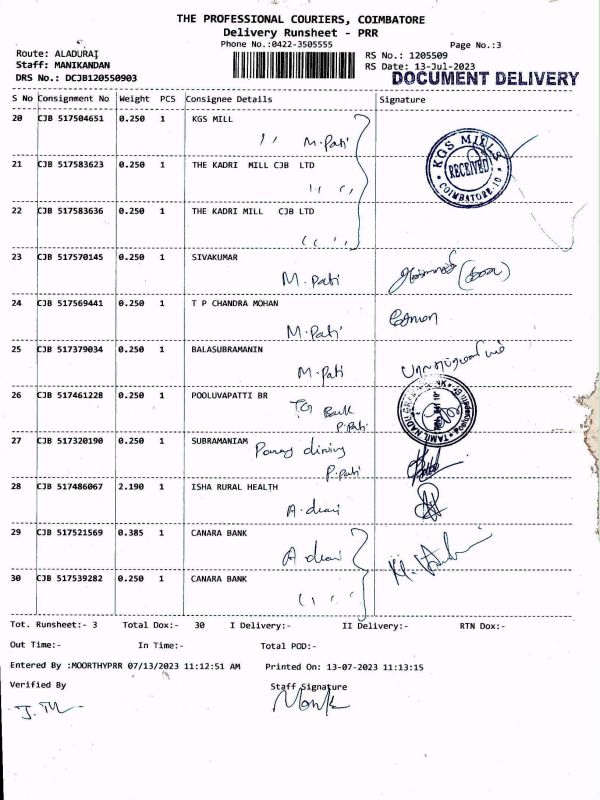 THE PROFESSIONAL COURIERS, COIMBATORE
Delivery Runsheet - PRR
Phone No.:0422-3505555
Page No.:3
Route: ALADURAI
RS No.: 1205509
Staff: MANIKANDAN
RS Date: 13-Jul-2023
DRS No.: DCJB120550903
DOCUMENT DELIVERY
S No Consignment No Weight PCS Consignee Details Signature
20 CJB 517504651 0.250 1 KGS MILL
M.Pati
KGS MILLS
RECEIVED
COIMBATORE-10
21 CJB 517583623 0.250 1 THE KADRI MILL CJB LTD
22 CJB 517583636 0.250 1 THE KADRI MILL CJB LTD
23 CJB 517570145 0.250 1 SIVAKUMAR
M.Pati
24 CJB 517569441 0.250 1 T P CHANDRA MOHAN
M.Pati
25 CJB 517379034 0.250 1 BALASUBRAMANIN
M.Pati
26 CJB 517461228 0.250 1 POOLUVAPATTI BR
TG Bank
P.Pati
27 CJB 517320190 0.250 1 SUBRAMANIAM
P.Pati
28 CJB 517486067 2.190 1 ISHA RURAL HEALTH
29 CJB 517521569 0.385 1 CANARA BANK
30 CJB 517539282 0.250 1 CANARA BANK
Tot. Runsheet:- 3 Total Dox:- 30 I Delivery:- II Delivery:- RTN Dox:-
Out Time:- In Time:- Total POD:-
Entered By :MOORTHYPRR 07/13/2023 11:12:51 AM Printed On: 13-07-2023 11:13:15
Verified By Staff Signature